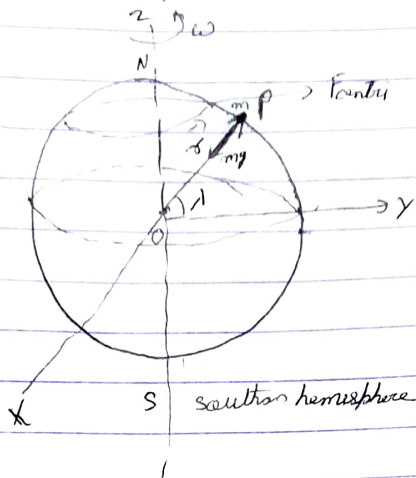 Z ω
N
m P
Fcentri
r
mg
λ
O
Y
X
S southan hemisphere